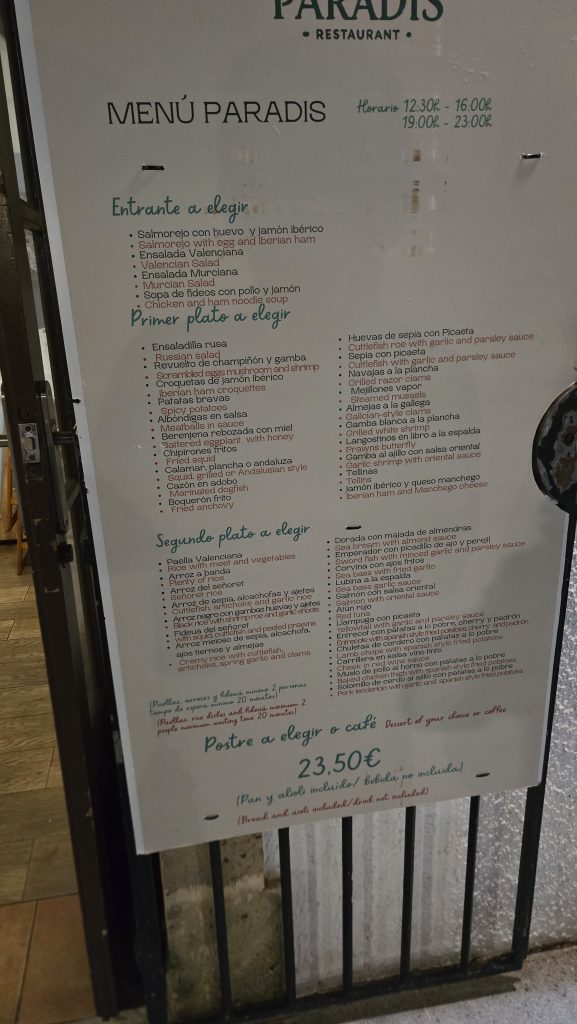 PARADIS
• RESTAURANT •
MENÚ PARADIS
Horario 12:30h - 16:00h
19:00h - 23:00h
Entrante a elegir
• Salmorejo con huevo y jamón ibérico
• Salmorejo with egg and Iberian ham
• Ensalada Valenciana
• Valencian Salad
• Ensalada Murciana
• Murcian Salad
• Sopa de fideos con pollo y jamón
• Chicken and ham noodle soup
Primer plato a elegir
• Ensaladilla rusa
• Russian salad
• Revuelto de champiñón y gamba
• Scrambled eggs mushroom and shrimp
• Croquetas de jamón ibérico
• Iberian ham croquettes
• Patatas bravas
• Spicy potatoes
• Albóndigas en salsa
• Meatballs in sauce
• Berenjena rebozada con miel
• Battered eggplant with honey
• Chipirones fritos
• Fried squid
• Calamar, plancha o andaluza
• Squid, grilled or Andalusian style
• Cazón en adobo
• Marinated dogfish
• Boquerón frito
• Fried anchovy
• Huevas de sepia con Picaeta
• Cuttlefish roe with garlic and parsley sauce
• Sepia con picaeta
• Cuttlefish with garlic and parsley sauce
• Navajas a la plancha
• Grilled razor clams
• Mejillones vapor
• Steamed mussels
• Almejas a la gallega
• Galician-style clams
• Gamba blanca a la plancha
• Grilled white shrimp
• Langostinos en libro a la espalda
• Prawns butterfly
• Gamba al ajillo con salsa oriental
• Garlic shrimp with oriental sauce
• Tellinas
• Tellins
• Jamón ibérico y queso manchego
• Iberian ham and Manchego cheese
Segundo plato a elegir
• Paella Valenciana
• Rice with meet and vegetables
• Arroz a banda
• Plenty of rice
• Arroz del señoret
• Señoret rice
• Arroz de sepia, alcachofas y ajetes
• Cuttlefish, artichoke and garlic rice
• Arroz negro con gambas huevas y ajetes
• Black rice with shrimp roe and garlic shoots
• Fideua del señoret
• with squid, cuttlefish and peeled prawns
• Arroz meloso de sepia, alcachofa,
ajos tiernos y almejas
• Cremy rice with cuttlefish,
artichoke, spring garlic and clams
• Dorada con majada de almendras
• Sea bream with almond sauce
• Emperador con picadillo de ajo y perejil
• Sword fish with minced garlic and parsley sauce
• Corvina con ajos fritos
• Sea bass with fried garlic
• Lubina a la espalda
• Sea bass garlic sauce
• Salmón con salsa oriental
• Salmon with oriental sauce
• Atún rojo
• Red tuna
• Llampuga con picaeta
• Yellowtail with garlic and parsley sauce
• Entrecot con patatas a lo pobre, cherry y padrón
• Entrecote with spanish style fried potatoes, cherry and padrón
• Chuletas de cordero con patatas a lo pobre
• Lamb chops with spanish style fried potatoes
• Carrillera en salsa vino tinto
• Cheek in red wine sauce
• Muslo de pollo al horno con patatas a lo pobre
• Baked chicken thigh with spanish style fried potatoes
• Solomillo de cerdo al ajillo con patatas a lo pobre
• Pork tenderloin with garlic and spanish style fried potatoes
(Paellas, arroces y fideuá mínimo 2 personas
tiempo de espera mínimo 20 minutos)
(Paellas, rice dishes and fideuá minimum 2
people minimum waiting time 20 minutes)
Postre a elegir o café Dessert of your choice or coffee
23,50€
(Pan y alioli incluido/ bebida no incluida)
(Bread and aioli included/drink not included)